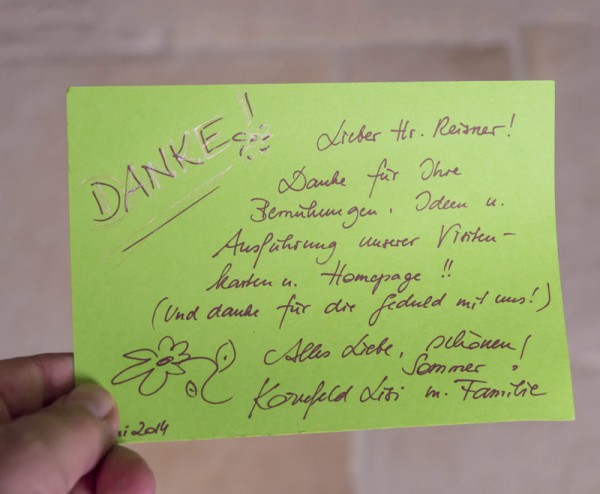 DANKE!
Lieber Hr. Reisner!
Danke für Ihre
Bemühungen, Ideen u.
Ausführung unserer Visiten-
karten u. Homepage !!
(Und danke für die Geduld mit uns!)
Alles Liebe, schönen
Sommer!
Kornfeld Lisi m. Familie
ni 2014